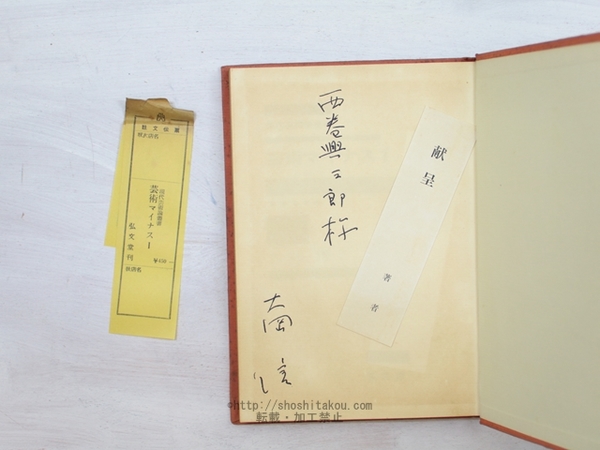 西巻興三郎様
大岡信
献呈
著者
芸術マイナス1
弘文堂刊
©http://shoshitakou.com
転載・加工禁止